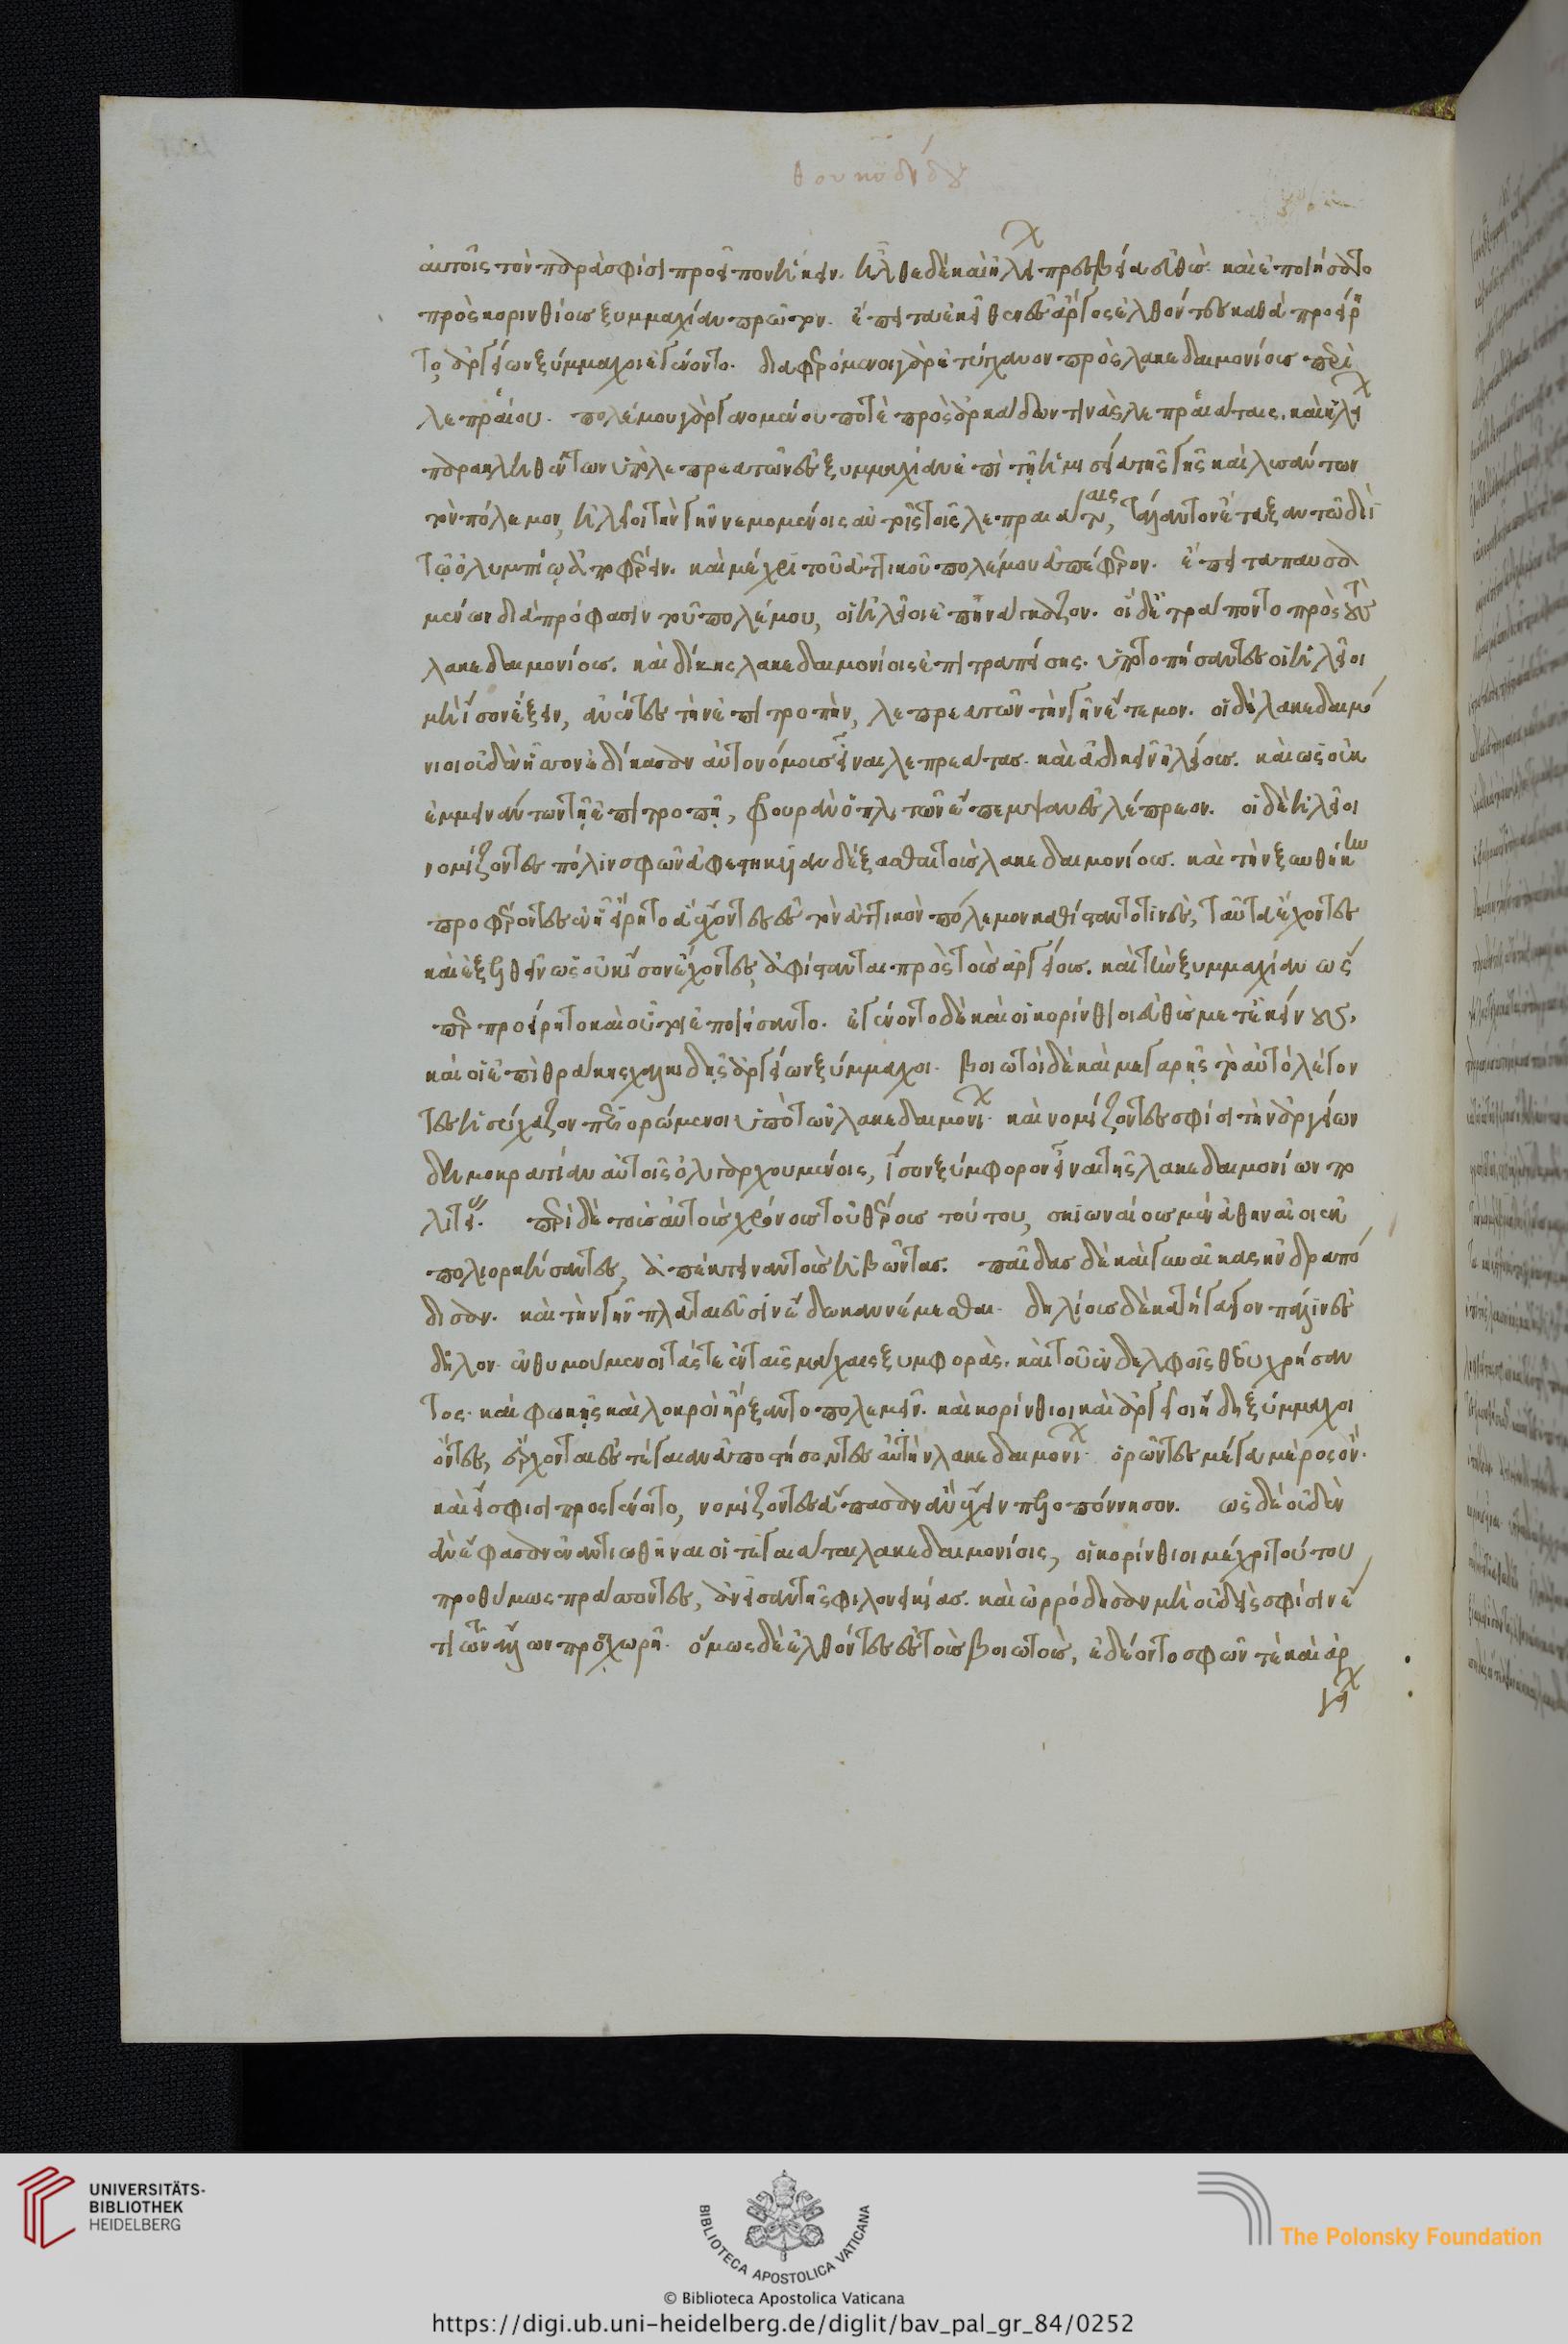 θουκυδίδου
αὐτοῖς τὸν παρὰ σφίσι προεῖπον ἥκειν. ἦλθε δὲ καὶ ἠλεί πρεσβεία εὐθὺς. καὶ ἐποιήσατο
πρὸς κορινθίους ξυμμαχίαν πρῶτον. ἔπειτα ἐκεῖθεν ἐς ἄργος ἐλθόντες καθὰ προείρη
το, ἀργείων ξύμμαχοι ἐγένοντο. διαφερόμενοι γὰρ ἐτύγχανον πρὸς λακεδαιμονίοις περὶ
λεπραίου. πολέμου γὰρ γενομένου ποτὲ πρὸς ἀρκάδων τινὰς λεπραιάταις. καὶ ἠλεί
παρακληθέντων ὑπὸ λεπρεατῶν ἐς ξυμμαχίαν ἐπὶ τῇ ἡμισείᾳ τῆς γῆς καὶ λυσάντων
τὸν πόλεμον, ἠλεῖοι τὴν γῆν νεμομένοις αὐτοῖς τοῖς λεπραιάταις, τάλαντον ἔταξαν τῷ διὶ
τῷ ὀλυμπίῳ ἀποφέρειν. καὶ μέχρι τοῦ ἀττικοῦ πολέμου ἀπέφερον. ἔπειτα παυσα
μένων διὰ πρόφασιν τοῦ πολέμου, οἱ ἠλεῖοι ἐπηνάγκαζον. οἱ δ᾽ ἐτράποντο πρὸς τοὺς
λακεδαιμονίους. καὶ δίκης λακεδαιμονίοις ἐπιτραπείσης. ὑποτοπήσαντες οἱ ἠλεῖοι
μὴ ἴσον ἕξειν, ἀνέντες τὴν ἐπιτροπὴν, λεπρεατῶν τὴν γῆν ἔτεμον. οἱ δὲ λακεδαιμό
νιοι οὐδὲν ἧσσον ἐδίκασαν αὐτονόμους εἶναι λεπρεάτας. καὶ ἀδικεῖν ἠλείους. καὶ ὡς οὐκ
ἐμμεινάντων τῇ ἐπιτροπῇ, φρουρὰν ὁπλιτῶν ἔπεμψαν ἐς λέπρεον. οἱ δὲ ἠλεῖοι
νομίζοντες πόλιν σφῶν ἀφεστηκυῖαν δέξασθαι τοὺς λακεδαιμονίους. καὶ τὴν ξυνθήκην
προφέροντες ἐν ᾗ εἴρητο ἃ ἔχοντες ἐς τὸν ἀττικὸν πόλεμον καθίσταντό τινες, ταῦτα ἔχοντες
καὶ ἐξελθεῖν ὡς οὐκ ἴσον ἔχοντες, ἀφίστανται πρὸς τοὺς ἀργείους. καὶ τὴν ξυμμαχίαν ὥς
περ προείρητο καὶ οὗτοι ἐποιήσαντο. ἐγένοντο δὲ καὶ οἱ κορίνθιοι εὐθὺς μετ᾽ ἐκείνους,
καὶ οἱ ἐπὶ θράκης χαλκιδῆς ἀργείων ξύμμαχοι. βοιωτοὶ δὲ καὶ μεγαρῆς τὸ αὐτὸ λέγον
τες ἡσύχαζον περιορώμενοι ὑπὸ τῶν λακεδαιμονι. καὶ νομίζοντες σφίσι τὴν ἀργείων
δημοκρατίαν αὐτοῖς ὀλιγαρχουμένοις, ἧσσον ξύμφορον εἶναι τῆς λακεδαιμονίων πο
λιτεί. περὶ δὲ τοὺς αὐτοὺς χρόνους τοῦ θέρους τούτου, σκιωναίους μὲν ἀθηναῖοι ἐκ
πολιορκήσαντες, ἀπέκτειναν τοὺς ἡβῶντας. παῖδας δὲ καὶ γυναῖκας ἠνδραπό
δισαν. καὶ τὴν γῆν πλαταιεῦσιν ἔδωκαν νέμεσθαι. δηλίους δὲ κατήγαγον πάλιν ἐς
δῆλον. ἐνθυμούμενοι τάς τε ἐν ταῖς μάχαις ξυμφοράς. καὶ τοῦ ἐν δελφοῖς θεοῦ χρήσαν
τος. καὶ φωκῆς καὶ λοκροὶ ἤρξαντο πολεμεῖν. καὶ κορίνθιοι καὶ ἀργεῖοι ἤδη ξύμμαχοι
ὄντες, ἔρχονται ἐς τέγεαν ἀποστήσοντες αὐτὴν λακεδαιμονι. ὁρῶντες μέγα μέρος ὄν.
καὶ εἰ σφίσι προσγένοιτο, νομίζοντες ἅπασαν ἂν ἔχειν πελοπόννησον. ὡς δὲ οὐδὲν
ἂν ἔφασαν ἐναντιωθῆναι οἱ τεγεάται λακεδαιμονίοις, οἱ κορίνθιοι μέχρι τούτου
προθύμως πράσσοντες, ἀνεῖσαν τῆς φιλονεικίας. καὶ ὠρρώδησαν μὴ οὐδεὶς σφίσιν ἔ
τι τῶν ἄλλων προσχωρῇ. ὅμως δὲ ἐλθόντες ἐς τοὺς βοιωτοὺς, ἐδέοντο σφῶν τε καὶ ἀρ
γεί
UNIVERSITÄTS-
BIBLIOTHEK
HEIDELBERG
BIBLIOTECA APOSTOLICA VATICANA
The Polonsky Foundation
© Biblioteca Apostolica Vaticana
https://digi.ub.uni-heidelberg.de/diglit/bav_pal_gr_84/0252